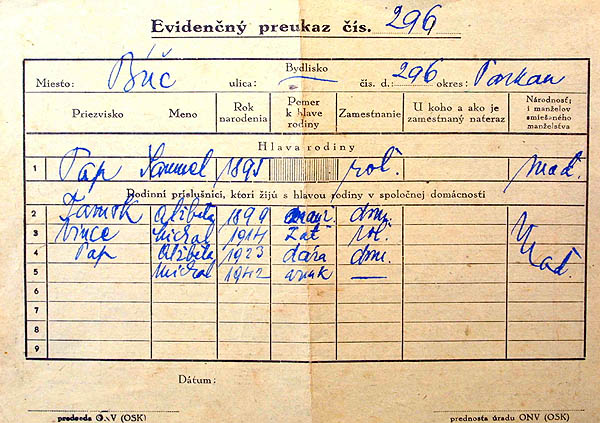 Evidenčný preukaz čís. 296
Bydlisko
Miesto: Búč ulica: — čís. d.: 296 okres: Parkan
Priezvisko Meno Rok narodenia Pomer k hlave rodiny Zamestnanie U koho a ako je zamestnaný nateraz Národnosť, i manželov smiešaného manželstva
Hlava rodiny
1 Pap Samuel 1895 roľ. maď.
Rodinní príslušníci, ktorí žijú s hlavou rodiny v spoločnej domácnosti
2 Alžbeta 1899 dom.
3 Vince Michal 1914 zať roľ.
4 Pap Alžbeta 1923 dcéra dom. Maď.
5 Michal 1942 vnuk —
6
7
8
9
Dátum:
predseda O.V (OSK) prednosta úradu ONV (OSK)